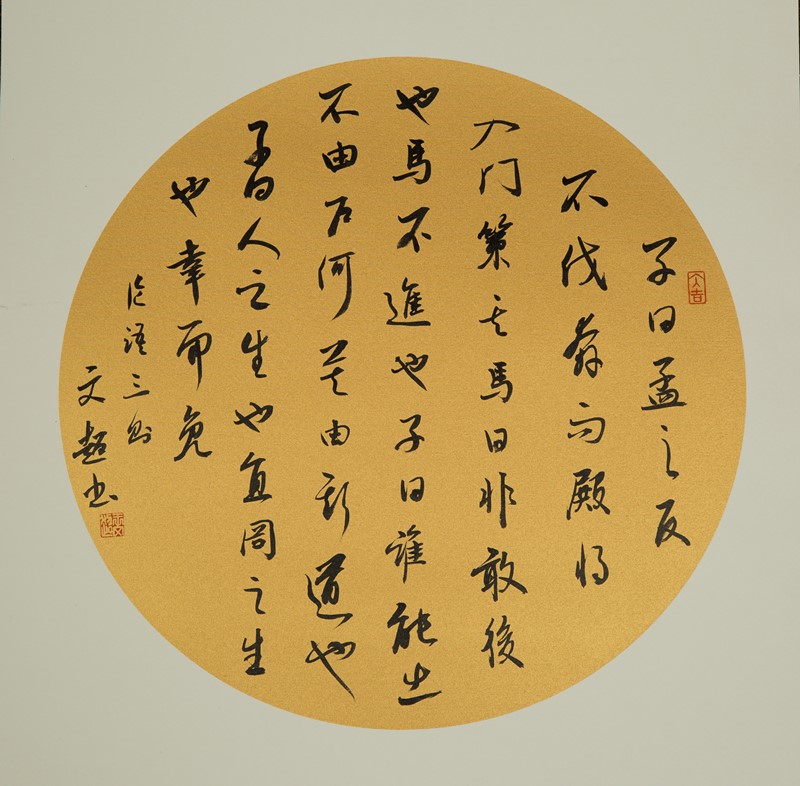 子曰孟之反
不伐奔而殿将
入门策其馬曰非敢後
也馬不進也子曰誰能出
不由户何莫由斯道也
子曰人之生也直罔之生
也幸而免
论語三则
文超书
大吉